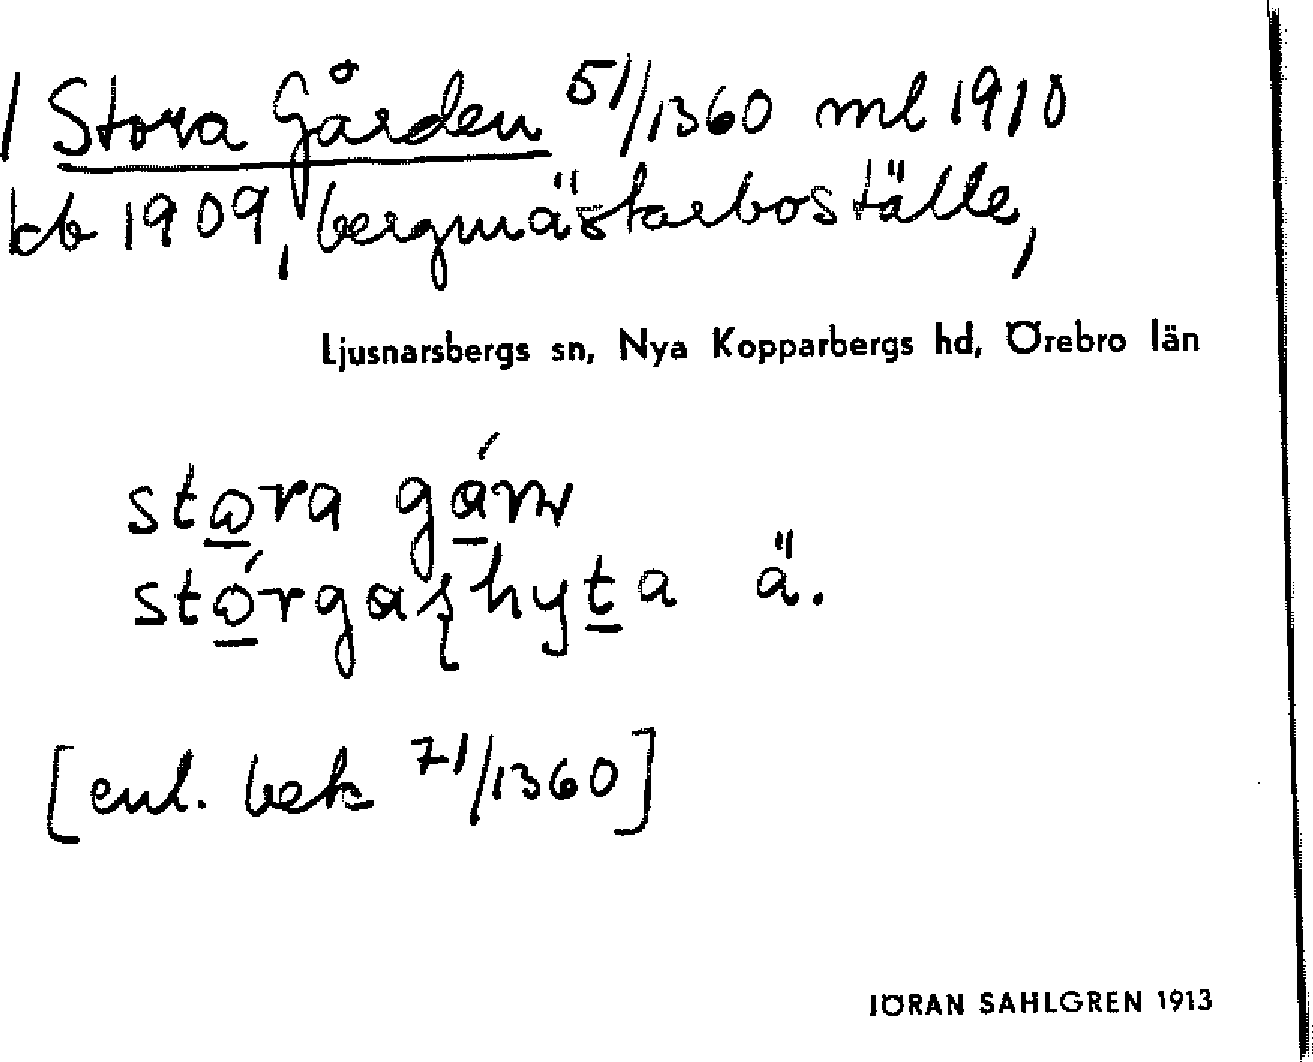 / Stora Gården 51/1360 ml 1910
kb 1909, bergmästarboställe,
Ljusnarsbergs sn, Nya Kopparbergs hd, Örebro län
stora
stórgaʂhyta ä.
[enl. bek 71/1360]
JÖRAN SAHLGREN 1913